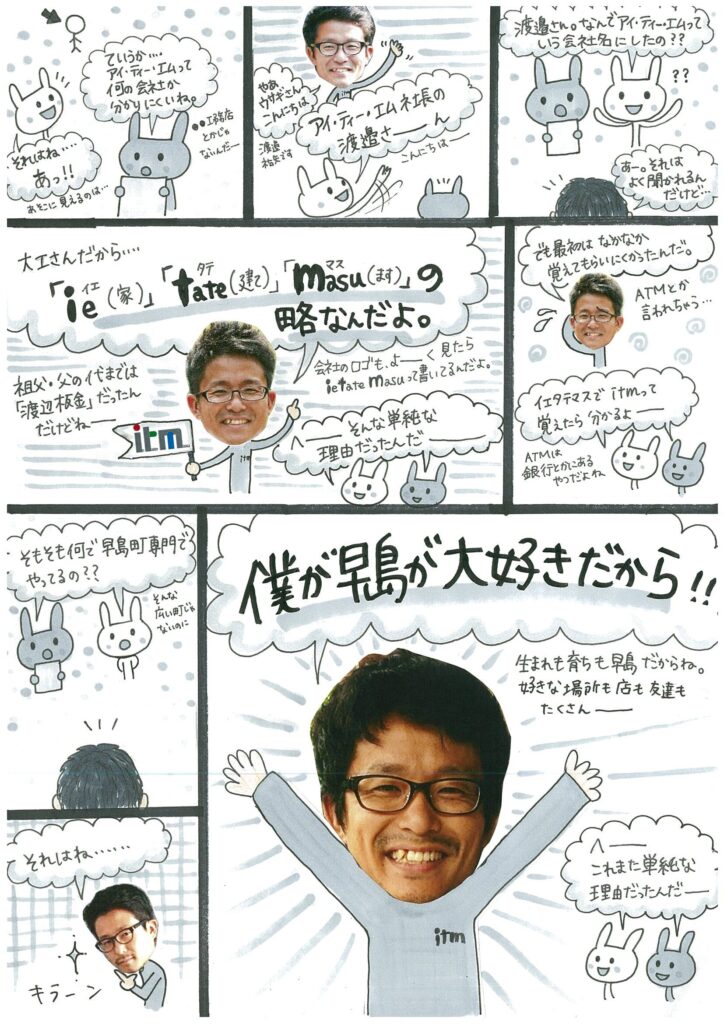 ていうか…
アイ・ティー・エムって
何の会社か
分かりにくいね。
●●工務店
とかじゃ
ないんだー
それはね…
あっ!!
あそこに見えるのは…
やあ、
ウサギさん
こんにちは
渡邉
祐兵です
アイ・ティー・エム社長の
渡邉さーん
こんにちはー
渡邉さん。なんでアイ・ティー・エムって
いう会社名にしたの??
??
あー。それは
よく聞かれるん
だけど…
大工さんだから…
「ie(家)」「tate(建て)」「masu(ます)」の
イエ
タテ
マス
略なんだよ。
会社のロゴも、よーく見たら
ie tate masuって書いてるんだよ。
祖父・父の代までは
「渡辺板金」だったん
だけどねー
itm
itm
へーそんな単純な
理由だったんだー
でも最初はなかなか
覚えてもらいにくかったんだ。
ATMとか
言われちゃう…
イエタテマスでitmって
覚えたら分かるよー
ATMは
銀行とかにある
やつだよね
そもそも何で早島町専門で
やってるの??
そんな
広い町じゃ
ないのに
それはね……
キラーン
僕が早島が大好きだから!!
生まれも育ちも早島だからね。
好きな場所も店も友達も
たくさんー
itm
へー
これまた単純な
理由だったんだー